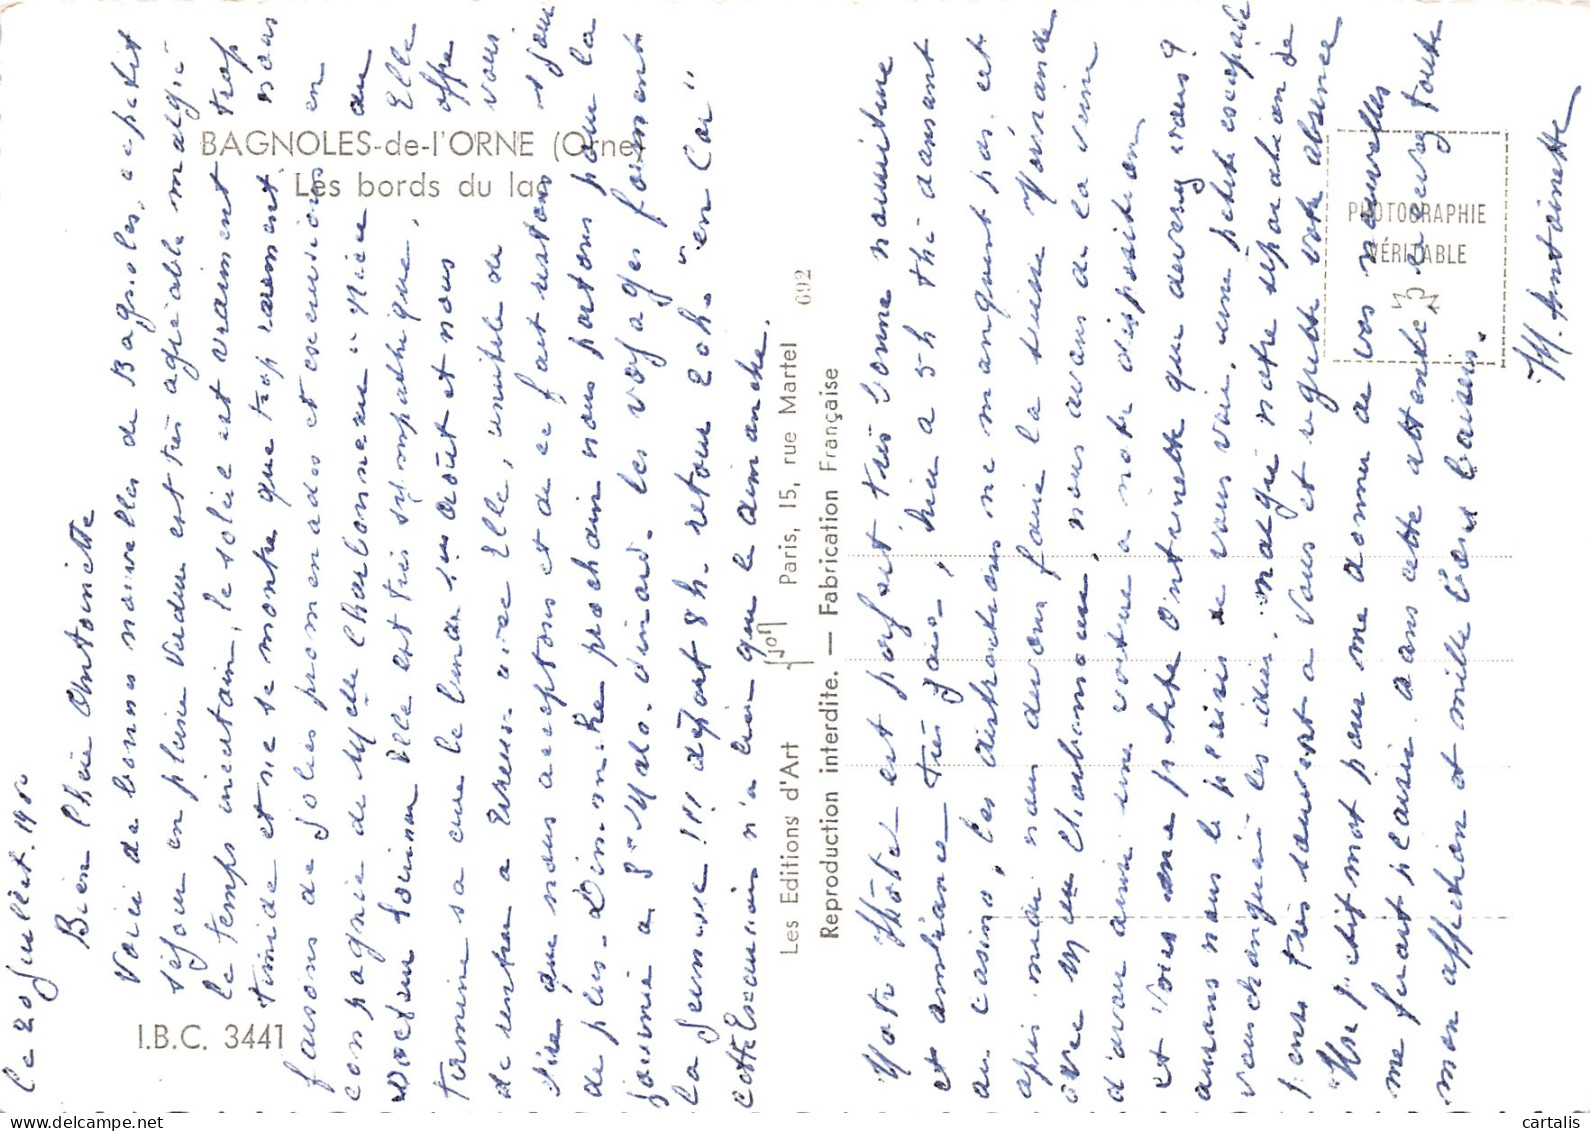 le 20 Juillet. 1950
Bien Chère Antoinette
Voici de bonnes nouvelles de Bagnoles, ce petit
séjour en pleine verdure est très agréable malgré
le temps incertain, le soleil est vraiment trop
timide et ne se montre que trop rarement nous
faisons de jolies promenades et excursions en
compagnie de Melle Charbonneau, nièce du
Docteur Elle est très sympathique, Elle
termine sa cure le lundi 1er août et nous offre
de rentrer a avec Elle, inutile de vous
dire que nous acceptons et de ce fait restons 1 jour
de plus - Dimanche prochain nous partons pour la
journée a St Malo - Dinard - les voyages forment
la jeunesse !!! départ 8h - retour 20h - "en Car"
cette Excursion n'a lieu que le dimanche.
Notre Hôtel est parfait très bonne nourriture
et ambiance très gaie, hier a 5h thé dansant
au Casino, les distractions ne manquent pas, cet
après midi nous devons faire la suisse Normande
avec Melle Charbonneau, nous avons de la veine
d'avoir ainsi une voiture a notre disposition
et vous ma petite Antoinette que devenez vous?
aurons nous le plaisir de vous voir, une petite escapade
vous changerai les idées. Malgré notre séparation je
pense très souvent a vous et regrette votre absence
Un petit mot pour me donner de vos nouvelles
me ferait plaisir. Dans cette attente, recevez toute
mon affection et mille bons baisers.
M. Antoinette
BAGNOLES-de-l'ORNE (Orne)
Les bords du lac
I.B.C. 3441
Les Editions d'Art Paris, 15, rue Martel 692
Reproduction interdite. — Fabrication Française
PHOTOGRAPHIE
VÉRITABLE
delcampe.net
cartalis